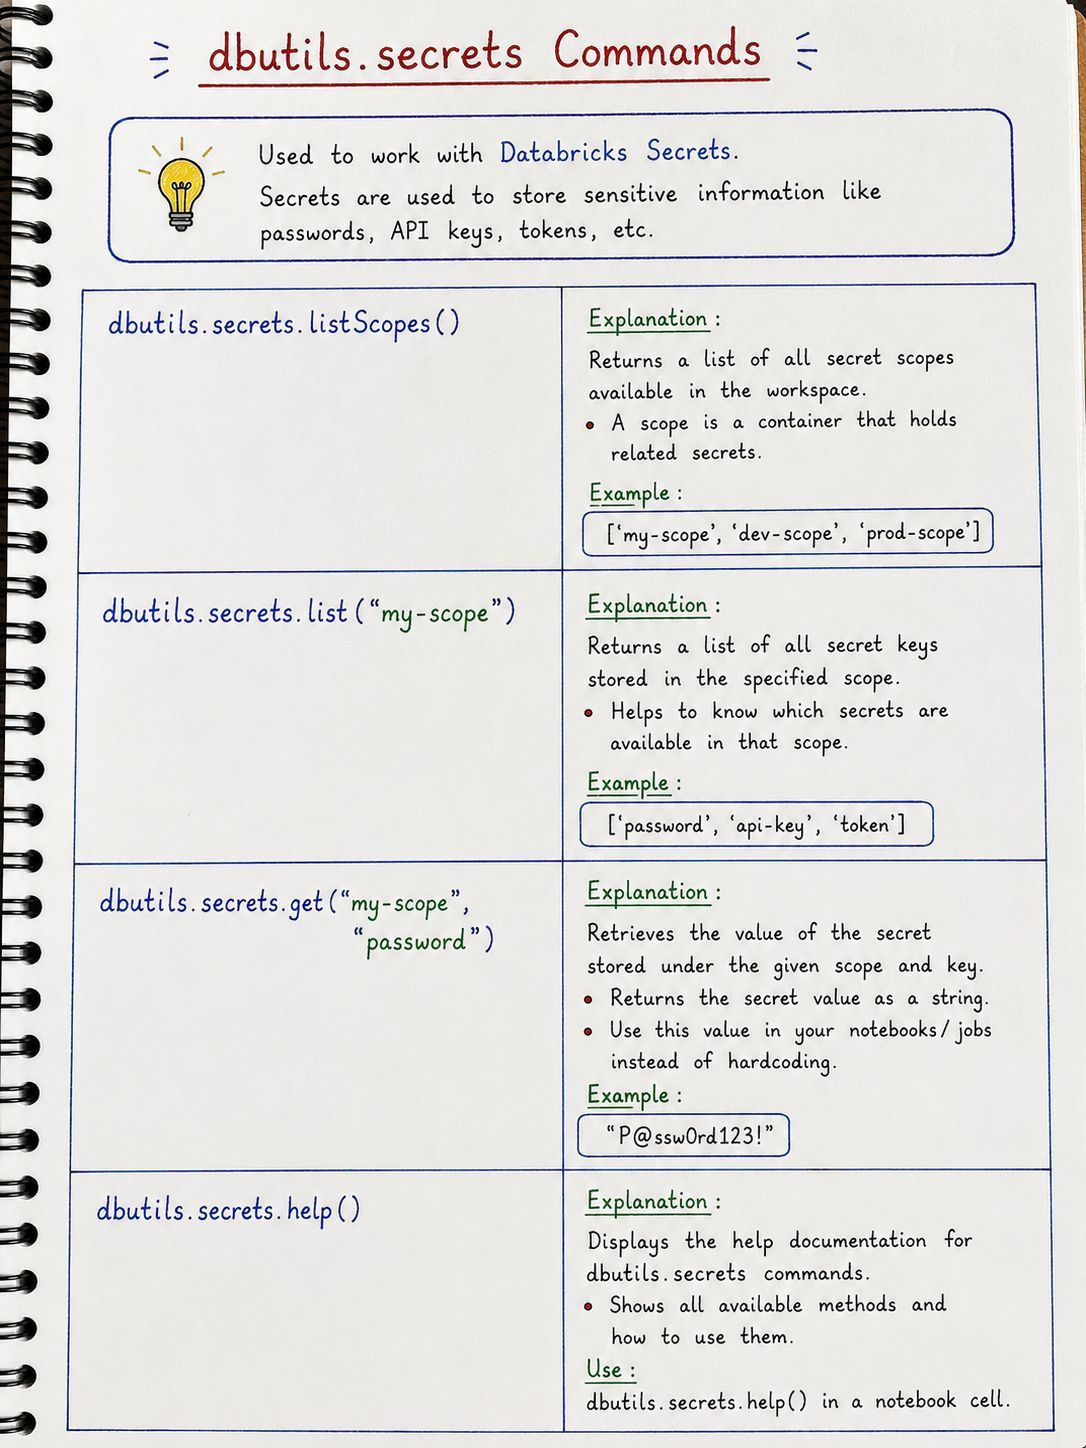 dbutils.secrets Commands
Used to work with Databricks Secrets.
Secrets are used to store sensitive information like
passwords, API keys, tokens, etc.
dbutils.secrets.listScopes()
Explanation :
Returns a list of all secret scopes
available in the workspace.
• A scope is a container that holds
related secrets.
Example :
[‘my-scope’, ‘dev-scope’, ‘prod-scope’]
dbutils.secrets.list(“my-scope”)
Explanation :
Returns a list of all secret keys
stored in the specified scope.
• Helps to know which secrets are
available in that scope.
Example :
[‘password’, ‘api-key’, ‘token’]
dbutils.secrets.get(“my-scope”,
“password”)
Explanation :
Retrieves the value of the secret
stored under the given scope and key.
• Returns the secret value as a string.
• Use this value in your notebooks/jobs
instead of hardcoding.
Example :
“P@ssw0rd123!”
dbutils.secrets.help()
Explanation :
Displays the help documentation for
dbutils.secrets commands.
• Shows all available methods and
how to use them.
Use :
dbutils.secrets.help() in a notebook cell.